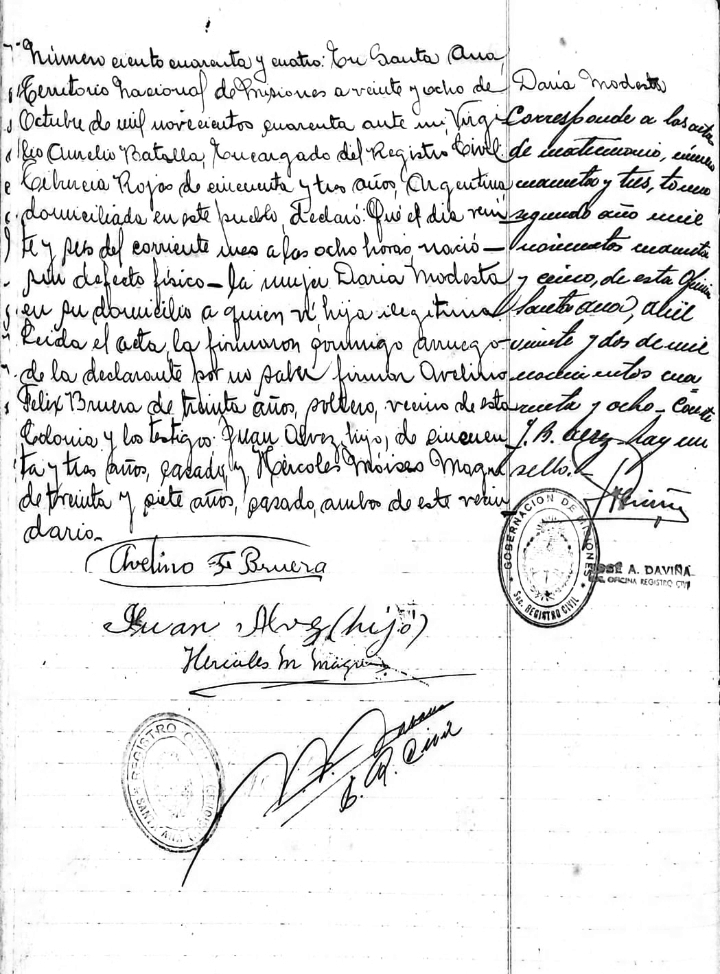 Número ciento cuarenta y cuatro: En Santa Ana,
Territorio Nacional de Misiones a veinte y ocho de
Octubre de mil novecientos cuarenta ante mi, Virgi
lio Aurelio Batalla, Encargado del Registro Civil
Tiburcia Rojas de cincuenta y tres años, Argentina
domiciliada en este pueblo, Declaró: Que el día vein
te y seis del corriente mes a las ocho horas, nació—
sin defecto físico— la mujer Daria Modesta
en su domicilio a quien vi hija ilegitima
Leida el acta, la firmaron conmigo a ruego
de la declarante por no saber firmar Avelino
Felix Bruera de treinta años, soltero, vecino de esta
Colonia y los testigos Juan Alvez, hijo, de cincuen
ta y tres años, casado, y Hércoles Moises
de treinta y siete años, casado, ambos de este vecin
dario.-
Avelino F Bruera
Juan Alvez (hijo)
Hercules M
E. R. Civil
REGISTRO
SANTA ANA
Daria Modesta
Corresponde a las actas
de matrimonio, número
cuarenta y tres, tomo
segundo año mil
novecientos cuarenta
y cinco, de esta Oficina
Santa Ana, abril
veinte y dos de mil
novecientos cua
renta y ocho -
J. B. hay un
sello.-
GOBERNACION DE MISIONES
REGISTRO CIVIL
JOSÉ A. DAVIÑA
OFICINA REGISTRO CIVIL